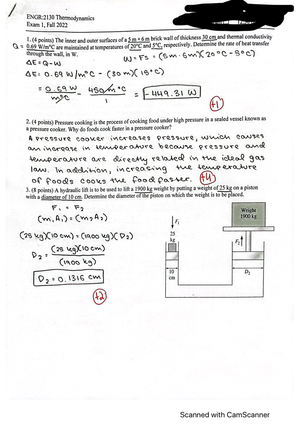 ENGR:2130 Thermodynamics
Exam 1, Fall 2022
1. (4 points) The inner and outer surfaces of a 5 m × 6 m brick wall of thickness 30 cm and thermal conductivity
Q = 0.69 W/m°C are maintained at temperatures of 20°C and 5°C, respectively. Determine the rate of heat transfer
through the wall, in W.
W = Fs = (5m · 6m)(20°C - 5°C)
ΔE = Q - W
ΔE = 0.69 W/m°C - (30m)(15°C)
= 0.69 W / m°C - 450 m°C / 1 = -449.31 W
+1
2. (4 points) Pressure cooking is the process of cooking food under high pressure in a sealed vessel known as
a pressure cooker. Why do foods cook faster in a pressure cooker?
A pressure cooker increases pressure, which causes
an increase in temperature because pressure and
temperature are directly related in the ideal gas
law. In addition, increasing the temperature
of foods cooks the food faster.
+4
3. (8 points) A hydraulic lift is to be used to lift a 1900 kg weight by putting a weight of 25 kg on a piston
with a diameter of 10 cm. Determine the diameter of the piston on which the weight is to be placed.
F₁ = F₂
(m₁A₁) = (m₂A₂)
(25 kg)(10 cm) = (1900 kg)(D₂)
D₂ = (25 kg)(10 cm) / (1900 kg)
D₂ = 0.1316 cm
+2
Weight
1900 kg
F₁
25
kg
F₂
10
cm
D₂
Scanned with CamScanner